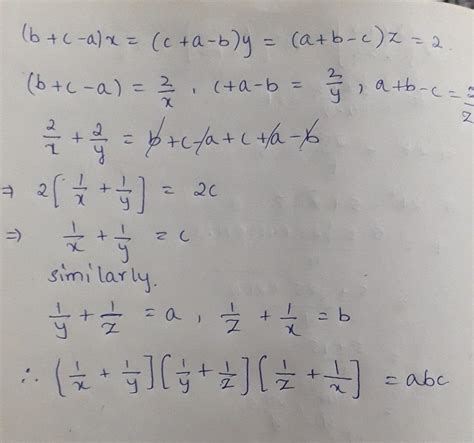 (b+c-a)x = (c+a-b)y = (a+b-c)z = 2.
(b+c-a) = 2/x, c+a-b = 2/y, a+b-c = 2/z
2/x + 2/y = b+c-a+c+a-b
⇒ 2[1/x + 1/y] = 2c
⇒ 1/x + 1/y = c
similarly.
1/y + 1/z = a, 1/z + 1/x = b
∴ (1/x + 1/y][1/y + 1/z][1/z + 1/x] = abc